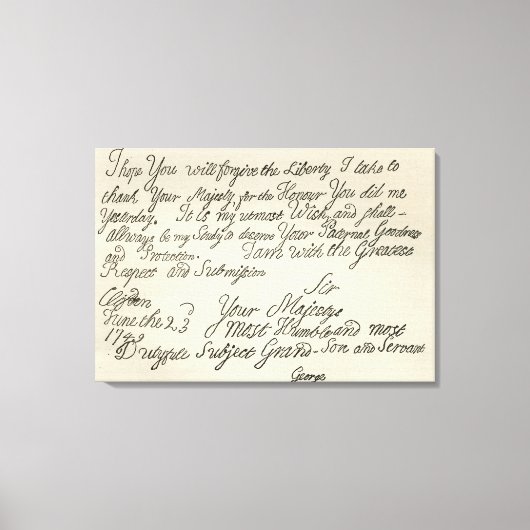 I hope You will forgive the Liberty I take to
thank Your Majesty for the Honour You did me
Yesterday. It Is my utmost Wish and shall -
Allways be my Study to deserve Your Paternal Goodness
and Protection. I am with the Greatest
Respect and Submission
Sir
Clifden
Your Majestys
June the 23d
Most Humble and most
Dutyfull Subject Grand-Son and Servant
George